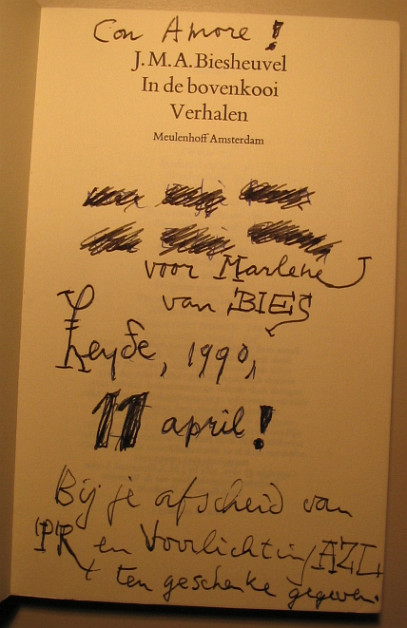 Con Amore!
J. M. A. Biesheuvel
In de bovenkooi
Verhalen
Meulenhoff Amsterdam
voor Marlene
van BIES
Leyde, 1990,
11 april!
Bij je afscheid van
PR en Voorlichting/AZL
ten geschenke gegeven.